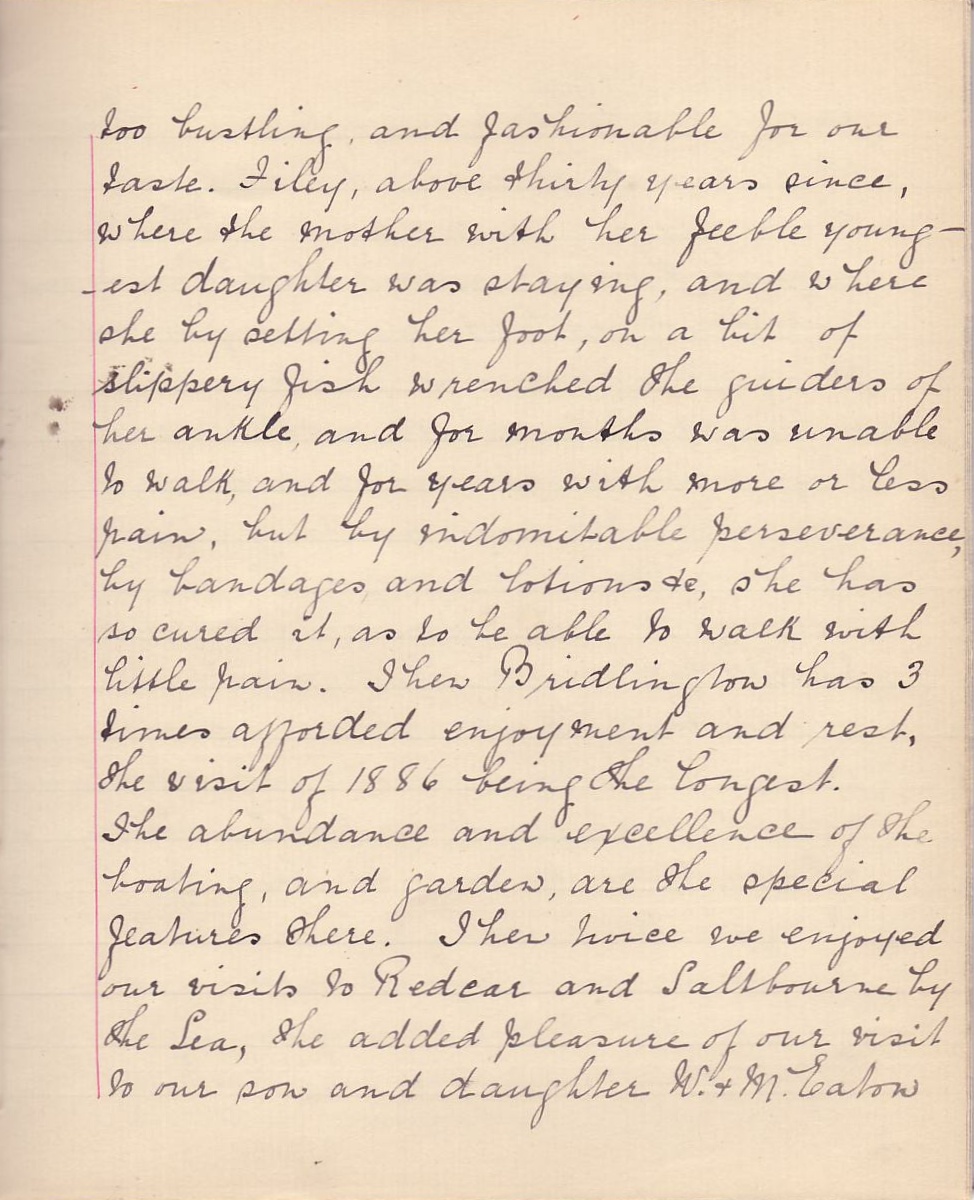 too bustling, and fashionable for our
taste. Filey, above thirty years since,
where the mother with her feeble young-
-est daughter was staying, and where
she by setting her foot, on a bit of
slippery fish wrenched the guiders of
her ankle, and for months was unable
to walk, and for years with more or less
pain, but by indomitable perseverance,
by bandages, and lotions &c, she has
so cured it, as to be able to walk with
little pain. Then Bridlington has 3
times afforded enjoyment and rest,
the visit of 1886 being the longest.
The abundance and excellence of the
boating, and garden, are the special
features there. Then twice we enjoyed
our visits to Redcar and Saltbourne by
the Sea, the added pleasure of our visit
to our son and daughter W. + M. Eaton